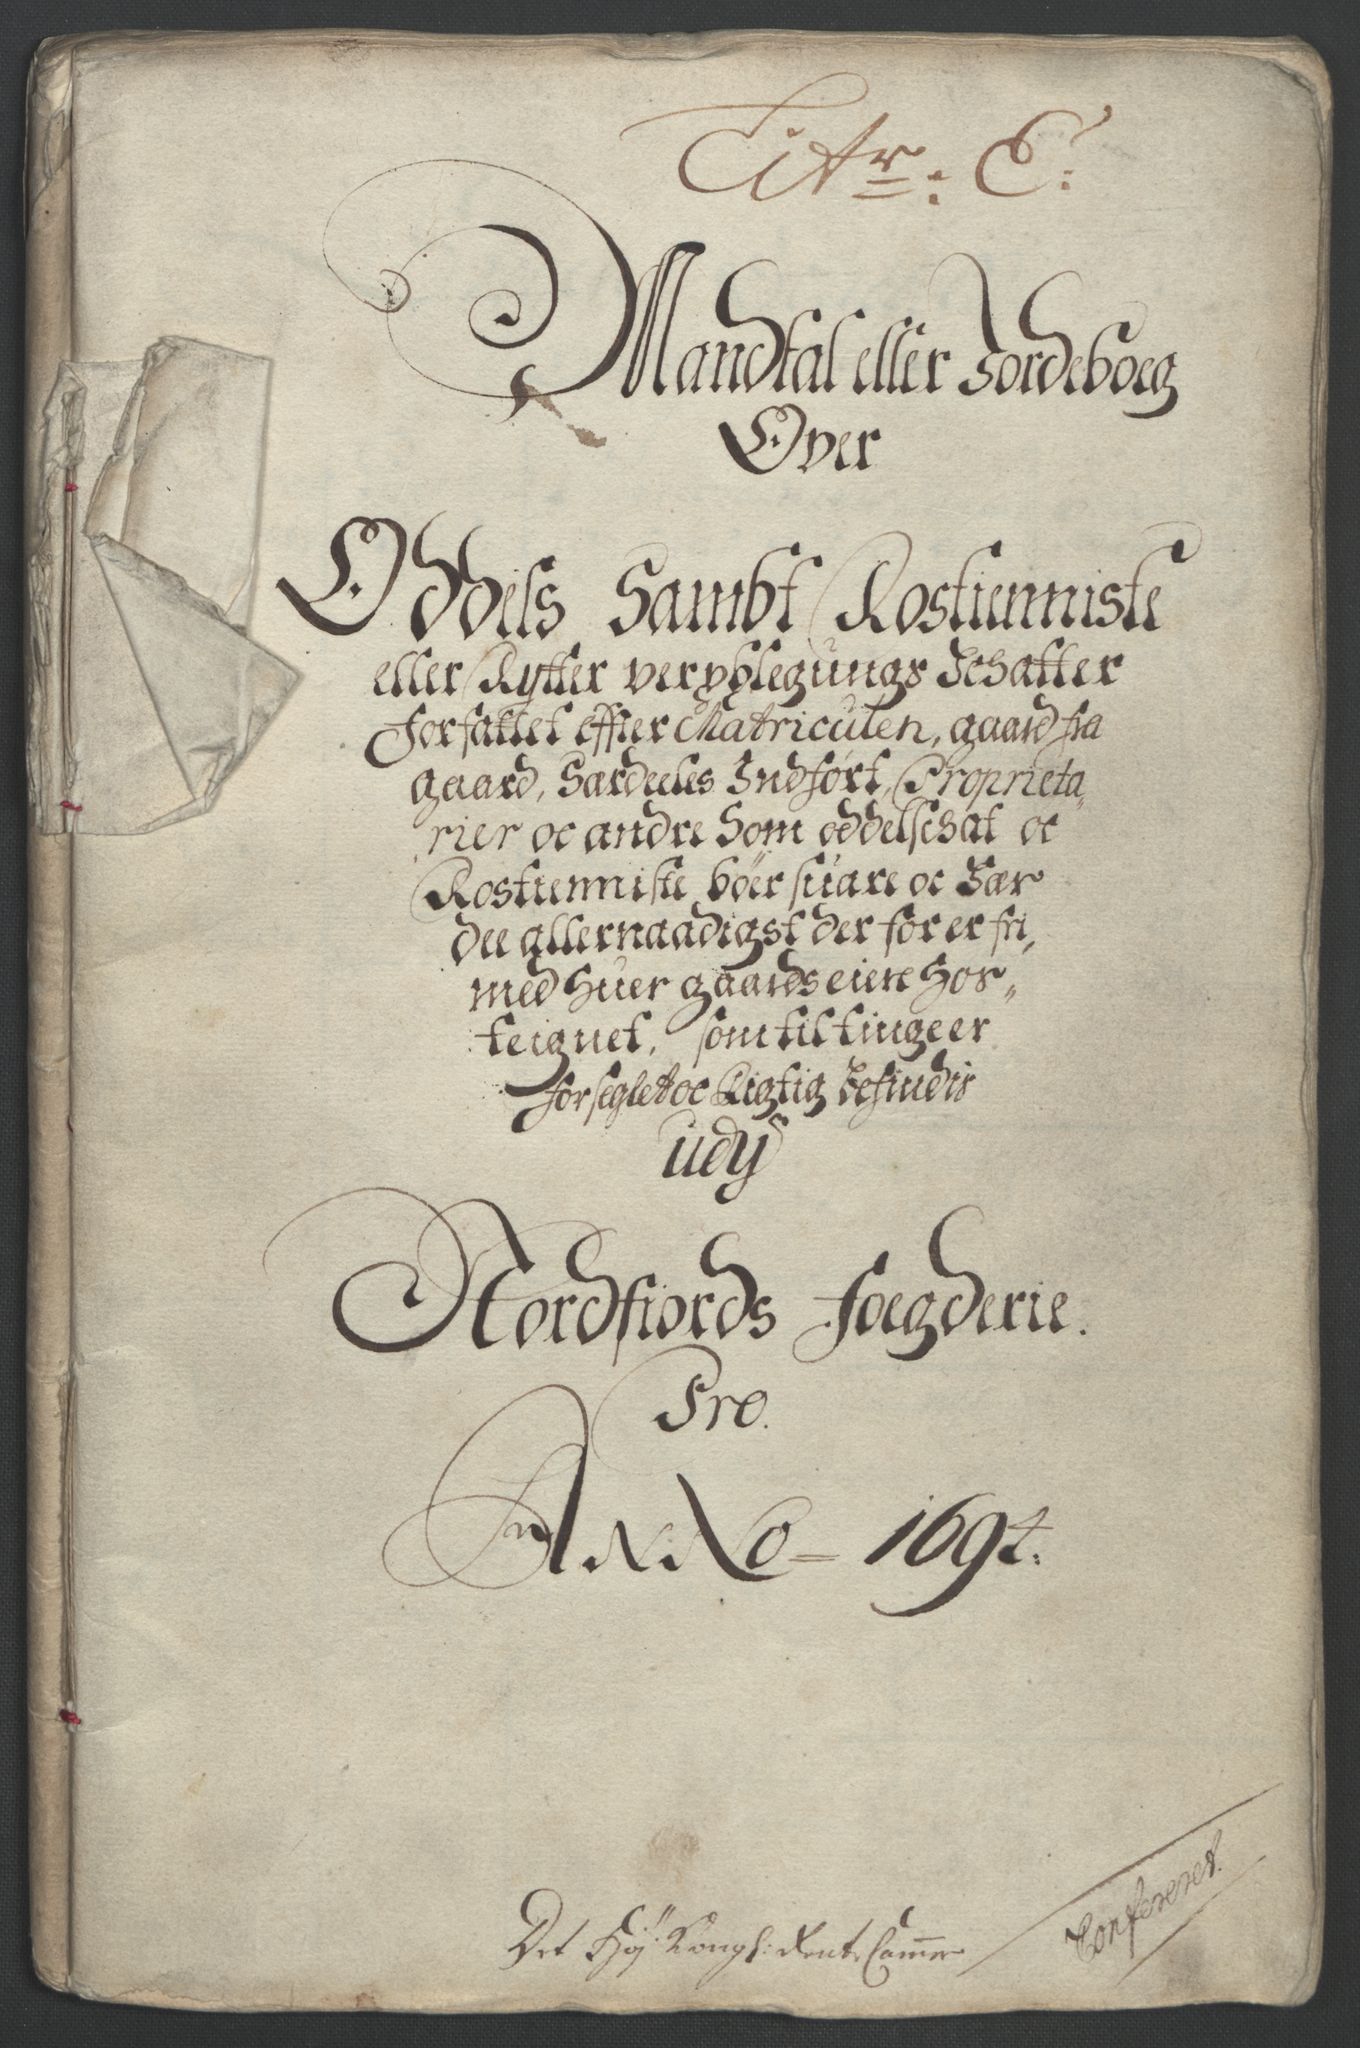 Litr. E:
Mandtal eller Jordeboeg
Over
Oddels Sambt Rostienniste
eller Rytter verpplegungs Schatter
forfattet effter Matriculen, gaard fra
gaard, Særdeeles Indført, Proprieta-
rier oc andre Som oddelschat oc
Rostienniste bøer suare oc Sær
dee allernaadigst der for er fri,
med huer gaards eiere hos-
teignet, som til tinge er
forseglet oc Rigtig befindis
udj
Nordfiords Foegderie.
Pro.
Anno - 1694.
Det Høj Kongl: Rente Cammer
Confereret.